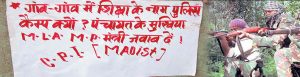 * गाँव-गाँव में शिक्षा के नाम पुलिस
कैम्प क्यों ? पंचायत के मुखिया
M-L-A. M-P. मंत्री जवाब दें !
C.P.I. [MAOIST]